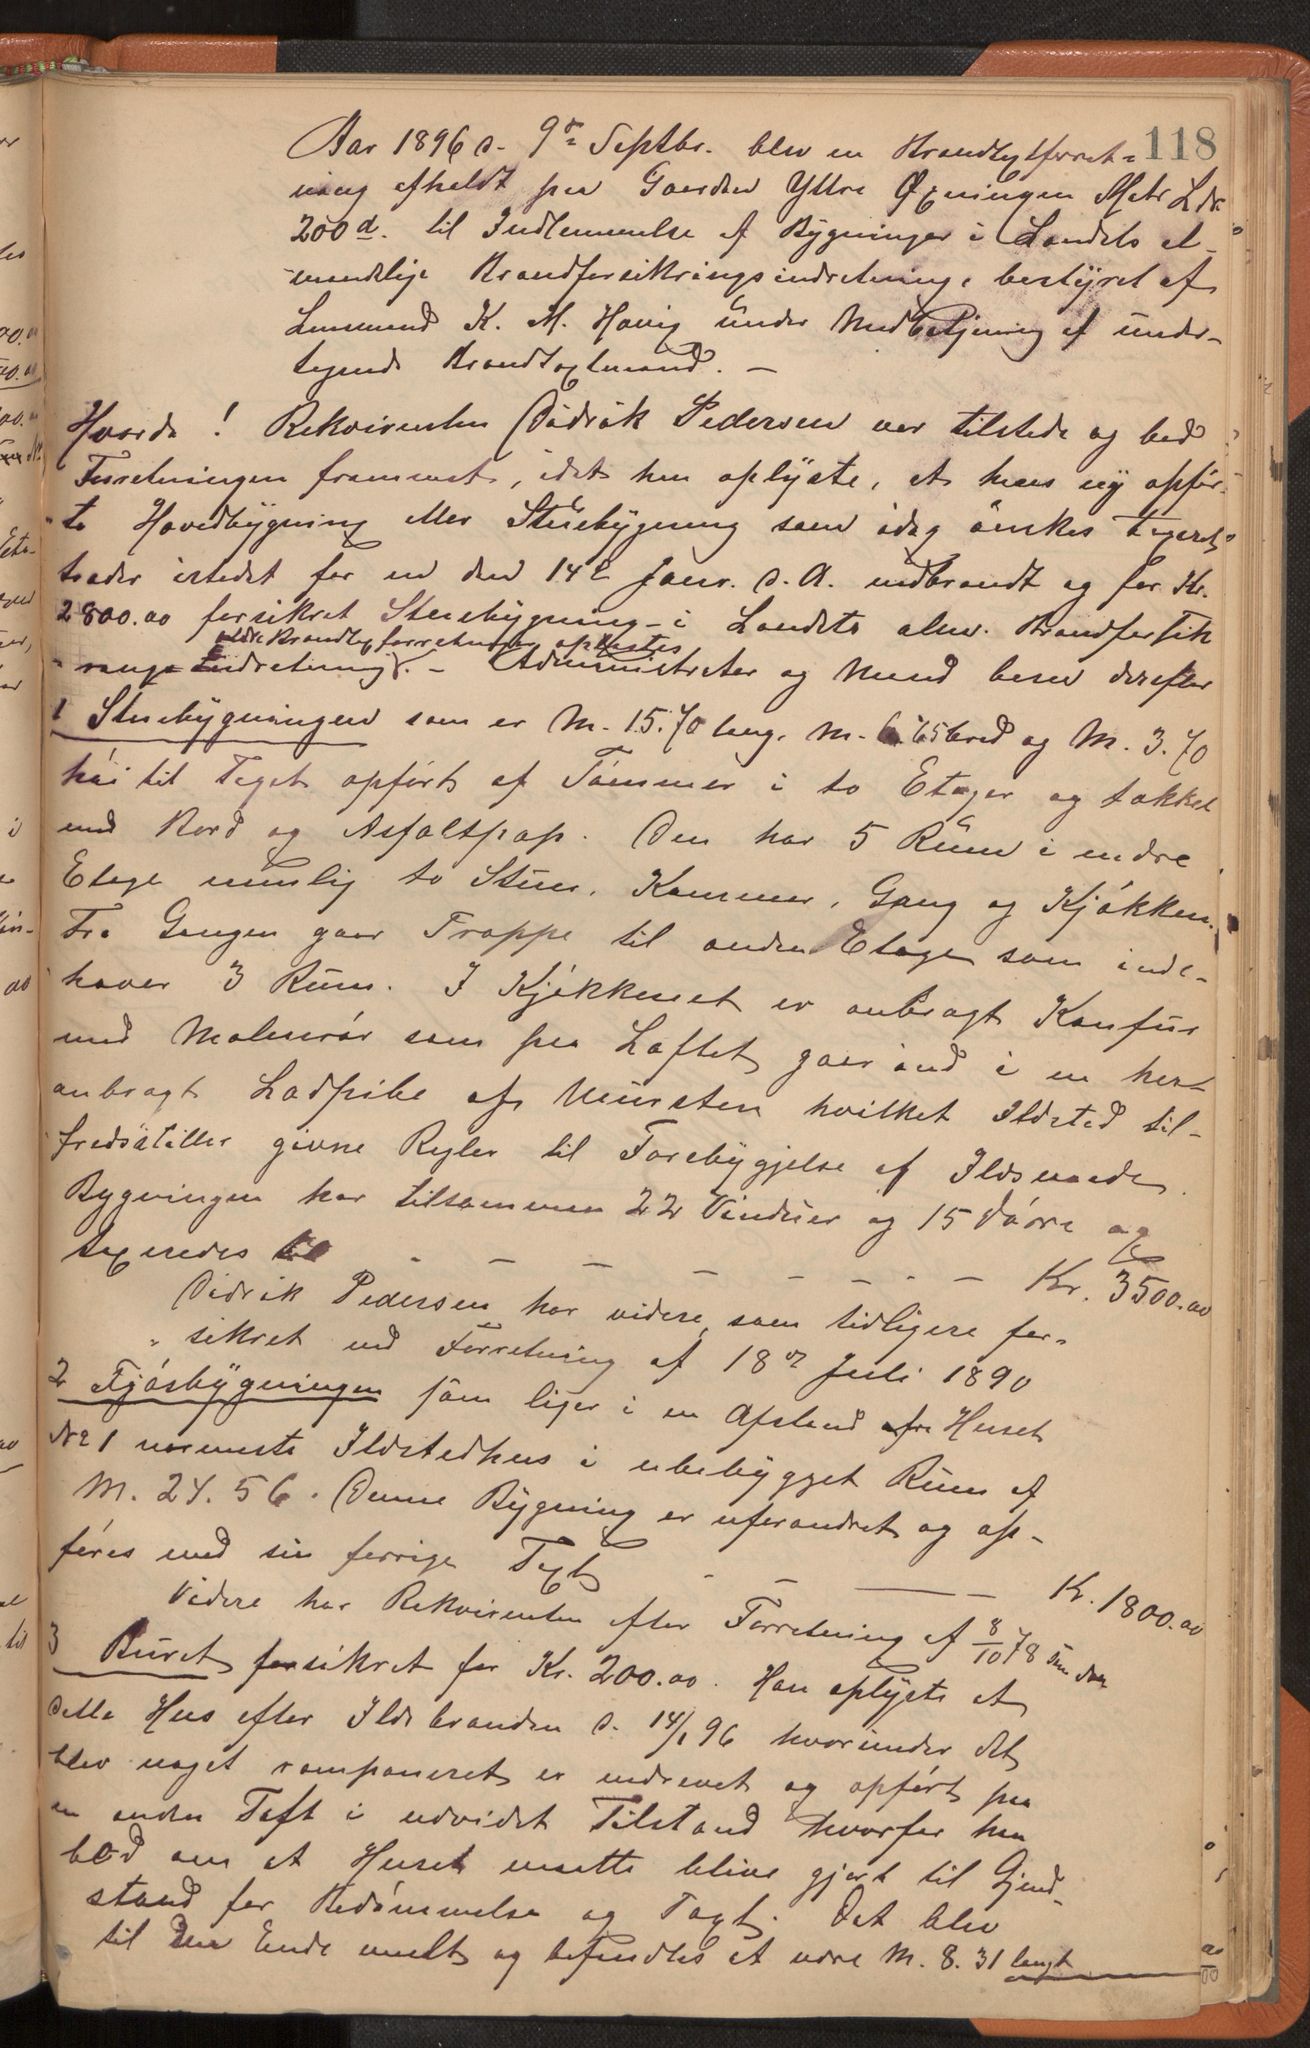 118
Aar 1896 d. 9de Septbr. blev en Brandtaxtforret-
ning afholdt paa Gaarden Yttre Øxningen Matr Lbr
200d. til Indlemmelse af Bygninger i Landets al-
mindelige Brandforsikringsindretning, bestyret af
Lensmand K. M. Havig under Medbetjening af under-
tegnede Brandtaxtmænd. —
Hvorda! Rekvirenten Didrik Pedersen var tilstede og bad
Forretningen fremmet, idet han oplyste, at hans ny opfør-
te Hovedbygning eller Stuebygning som idag ønskes taxeret
træder istedet for en den 14de Janr. d. A. nedbrændt og for Kr.
2800.00 forsikret Stuebygning i Landets alm. Brandforsik
ældre Brandtaxtforretninger oplæstes
rings Indretning. – Administrator og Mænd besaa derefter
1 Stuebygningen som er M. 15.70 lang, M. 6.65 bred og M. 3.70
høi til Taget opført af Tømmer i to Etager og tækket
med Bord og Asfaltpap. Den har 5 Rum i nedre
Etage nemlig to Stuer, Kammer, Gang og Kjøkken.
Fra Gangen gaar Trappe til anden Etage som inde-
haver 3 Rum. I Kjøkkenet er anbragt Komfur
med Malmrør som paa Loftet gaar ind i en her
anbragt Ladpibe af Mursten hvilket Ildsted til-
fredsstiller givne Regler til Forebyggelse af Ildsvaade.
Bygningen har tilsammen 22 Vinduer og 15 Dørre og
taxeredes til – – – – – – – – Kr. 3500.00
Didrik Pedersen har videre, som tidligere for-
sikret ved Forretning af 18de Juli 1890
2 Fjøsbygningen som ligger i en Afstand fra Huset
No 1 nærmeste Ildstedhus i ubebygget Rum af
M. 24.56. Denne Bygning er uforandret og op-
føres med sin forrige Taxt – – — – Kr. 1800.00
Videre har Rekvirenten efter Forretning af 8/10 78
3 Buret forsikret for Kr. 200.00. Han oplyste at
dette Hus efter Ildebranden d. 14/1 96 hvorunder det
blev noget ramponeret er nedrevet og opført paa
en anden Toft i udvidet Tilstand hvorfor han
bad om at Huset maatte blive gjort til Gjend-
stand for Bedømmelse og Taxt. Det blev
til den Ende maalt og befandtes at være M. 8.31 langt